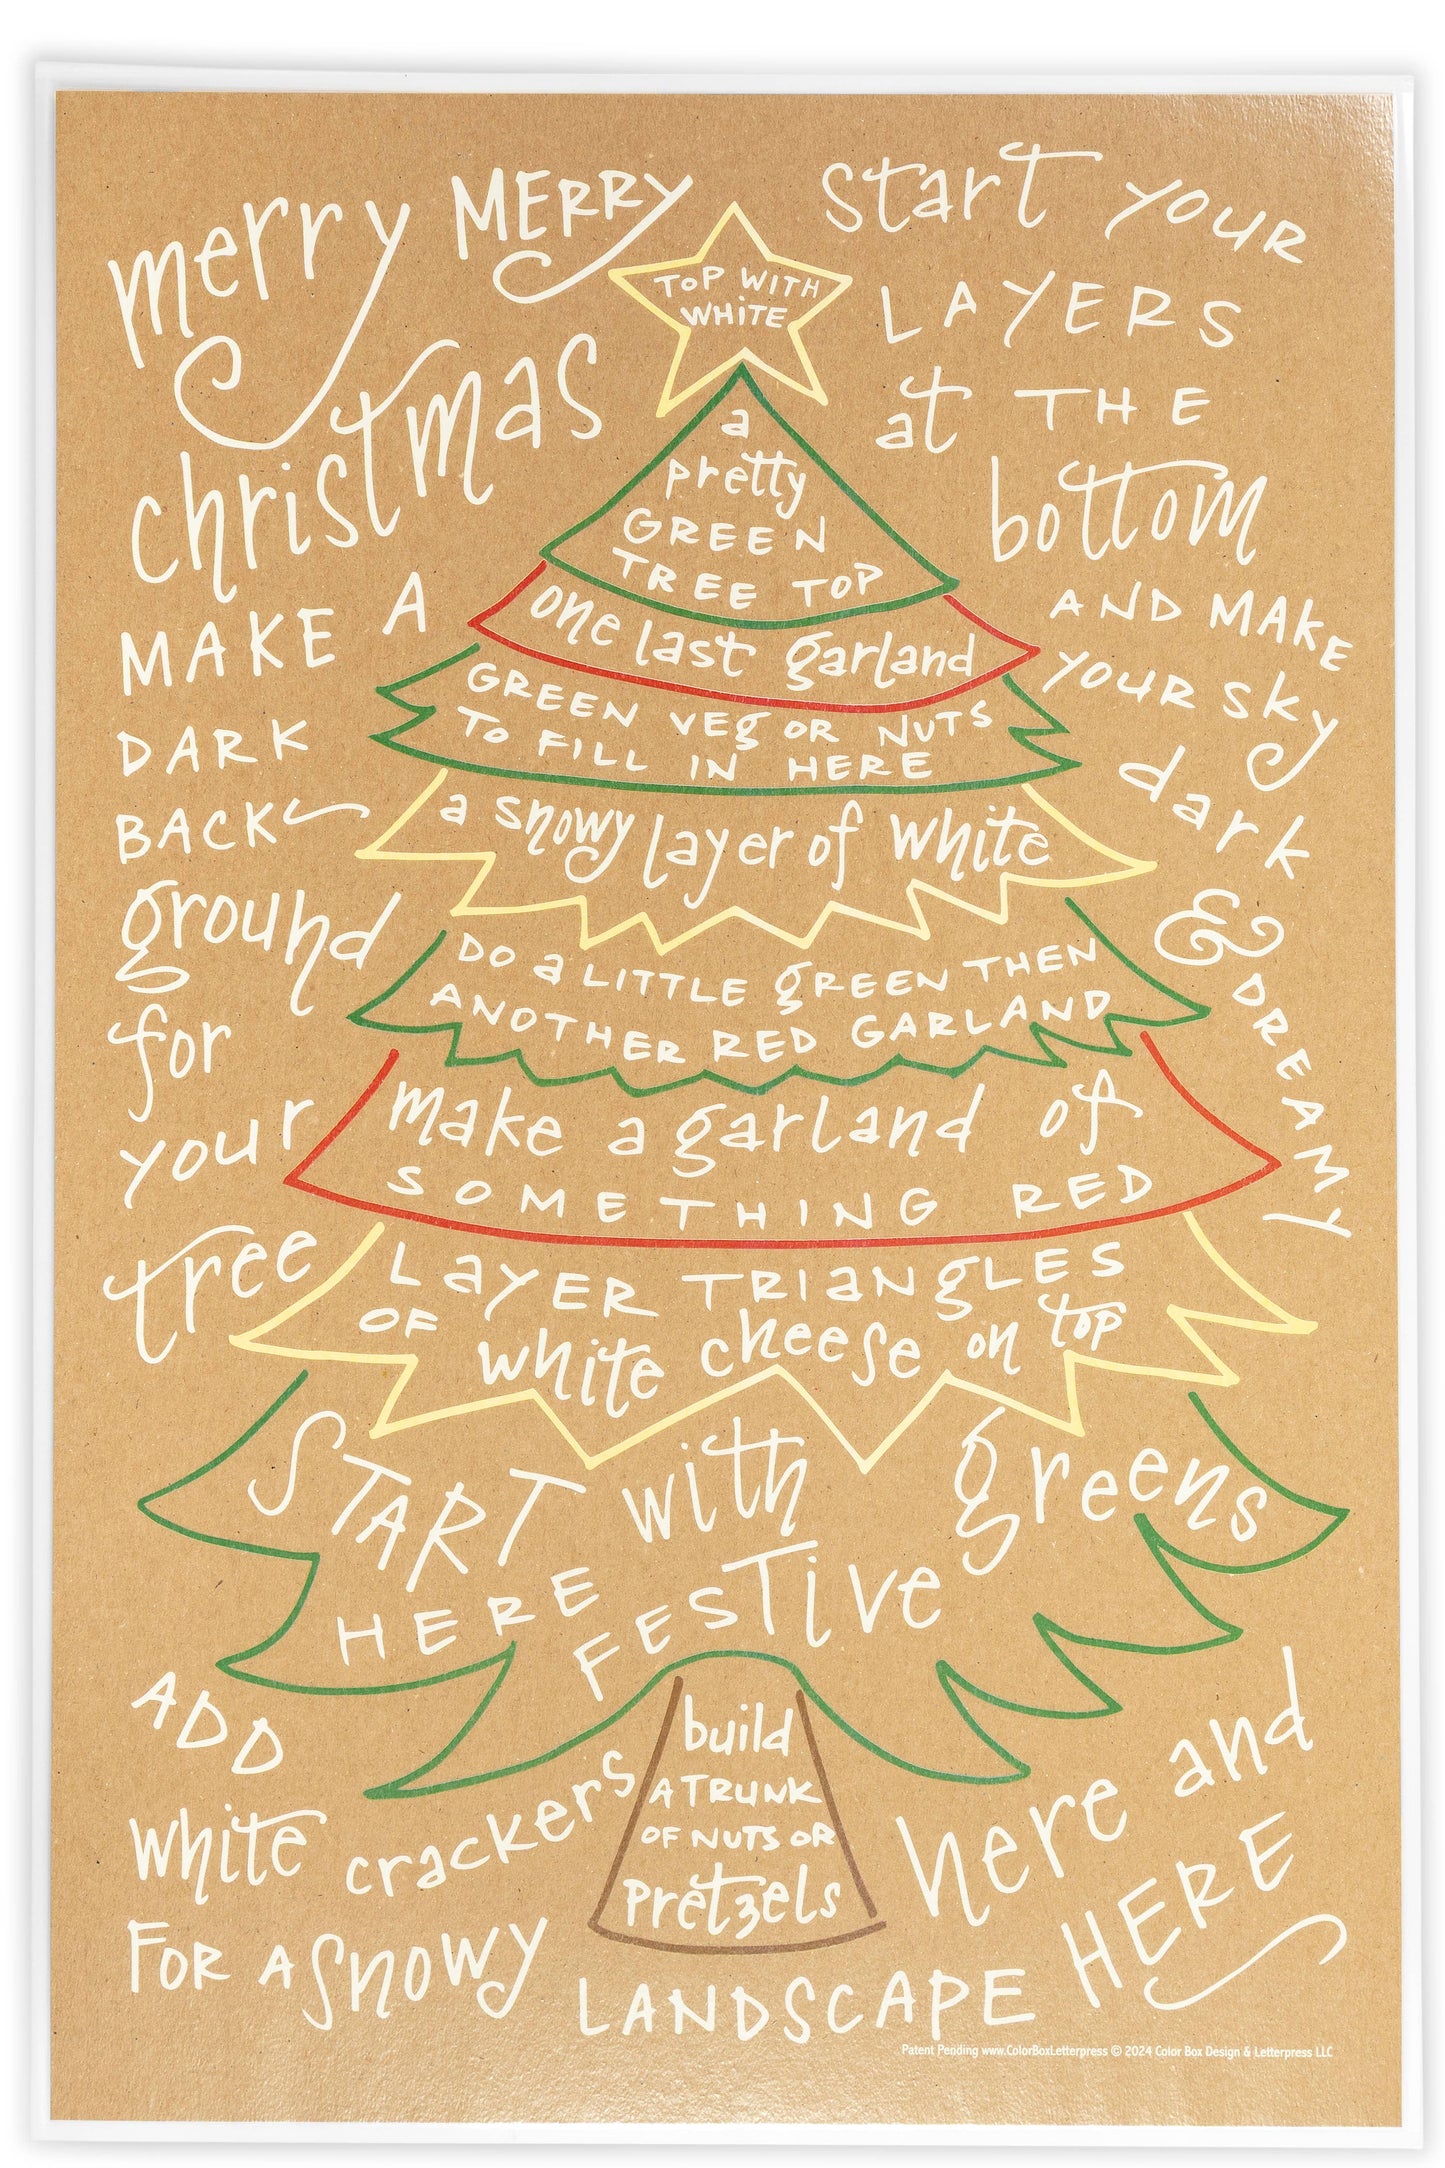 merry MERRY
christmas
MAKE A
DARK
BACK
ground
for
your
tree
start YOUR
LAYERS
at THE
bottom
AND MAKE
YOUR sky
dark
&
DREAMY
TOP WITH
WHITE
a
pretty
GREEN
TREE TOP
one last garland
GREEN VEG OR NUTS
TO FILL IN HERE
a snowy layer of white
DO a LITTLE GREEN THEN
ANOTHER RED GARLAND
make a garland of
SOMETHING RED
LAYER TRIANGLES
OF white cheese on top
START with greens
HERE FESTIVE
build
A TRUNK
OF NUTS OR
pretzels
ADD
white crackers
FOR A snowy
LANDSCAPE
here and
HERE
Patent Pending www.ColorBoxLetterpress © 2024 Color Box Design & Letterpress LLC